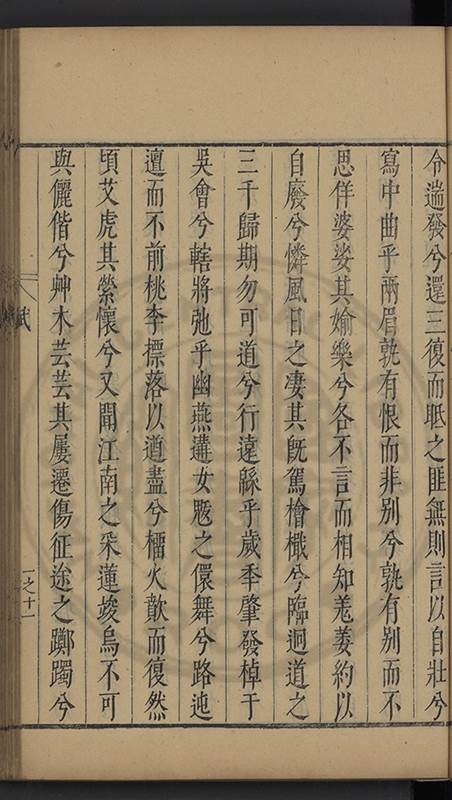 令遄發兮還三復而眂之匪無則言以自壯兮
寫中曲乎兩眉孰有恨而非別兮孰有別而不
思佯婆娑其媮樂兮各不言而相知羗萋約以
自廢兮憐風日之凄其旣駕檜檝兮臨迥道之
三千歸期勿可道兮行遠繇乎歲秊肇發棹于
吳會兮轄將弛乎幽燕遘女䰡之儇舞兮路迍
邅而不前桃李摽落以遒盡兮櫺火歊而復然
頃艾虎其縈懷兮又聞江南之采蓮竣烏不可
與儷偕兮艸木芸芸其屢遷傷征途之躑躅兮
賦
一之十一